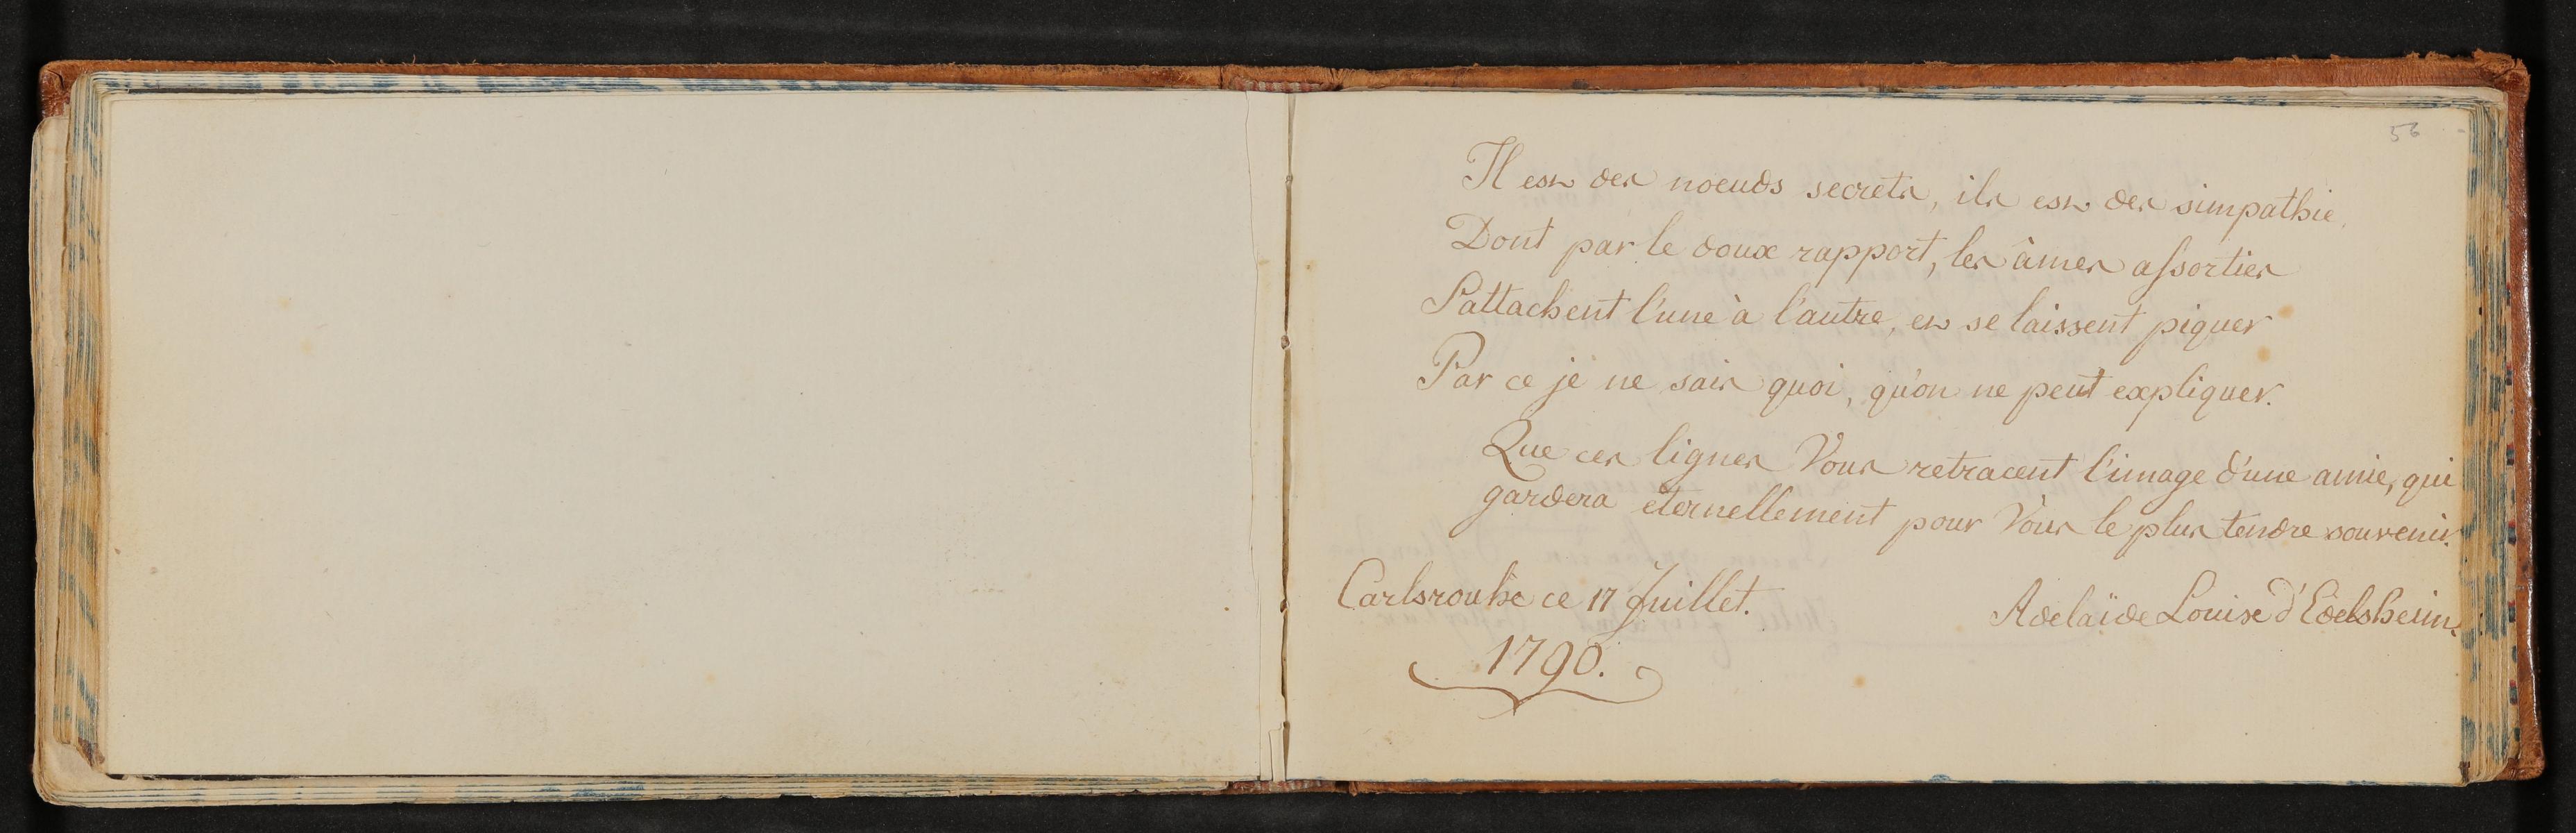 56
Il est des noeuds secrets, ils est des simpathie,
Dont par le doux rapport, les âmes assorties
S'attachent l'une à l'autre, et se laissent piquer
Par ce je ne sais quoi, qu'on ne peut expliquer.
Que ces lignes Vous retracent l'image d'une amie, qui
gardera éternellement pour Vous le plus tendre souvenir.
Carlsrouhe ce 17 Juillet.
1790.
Adelaïde Louise d'Edelsheim.